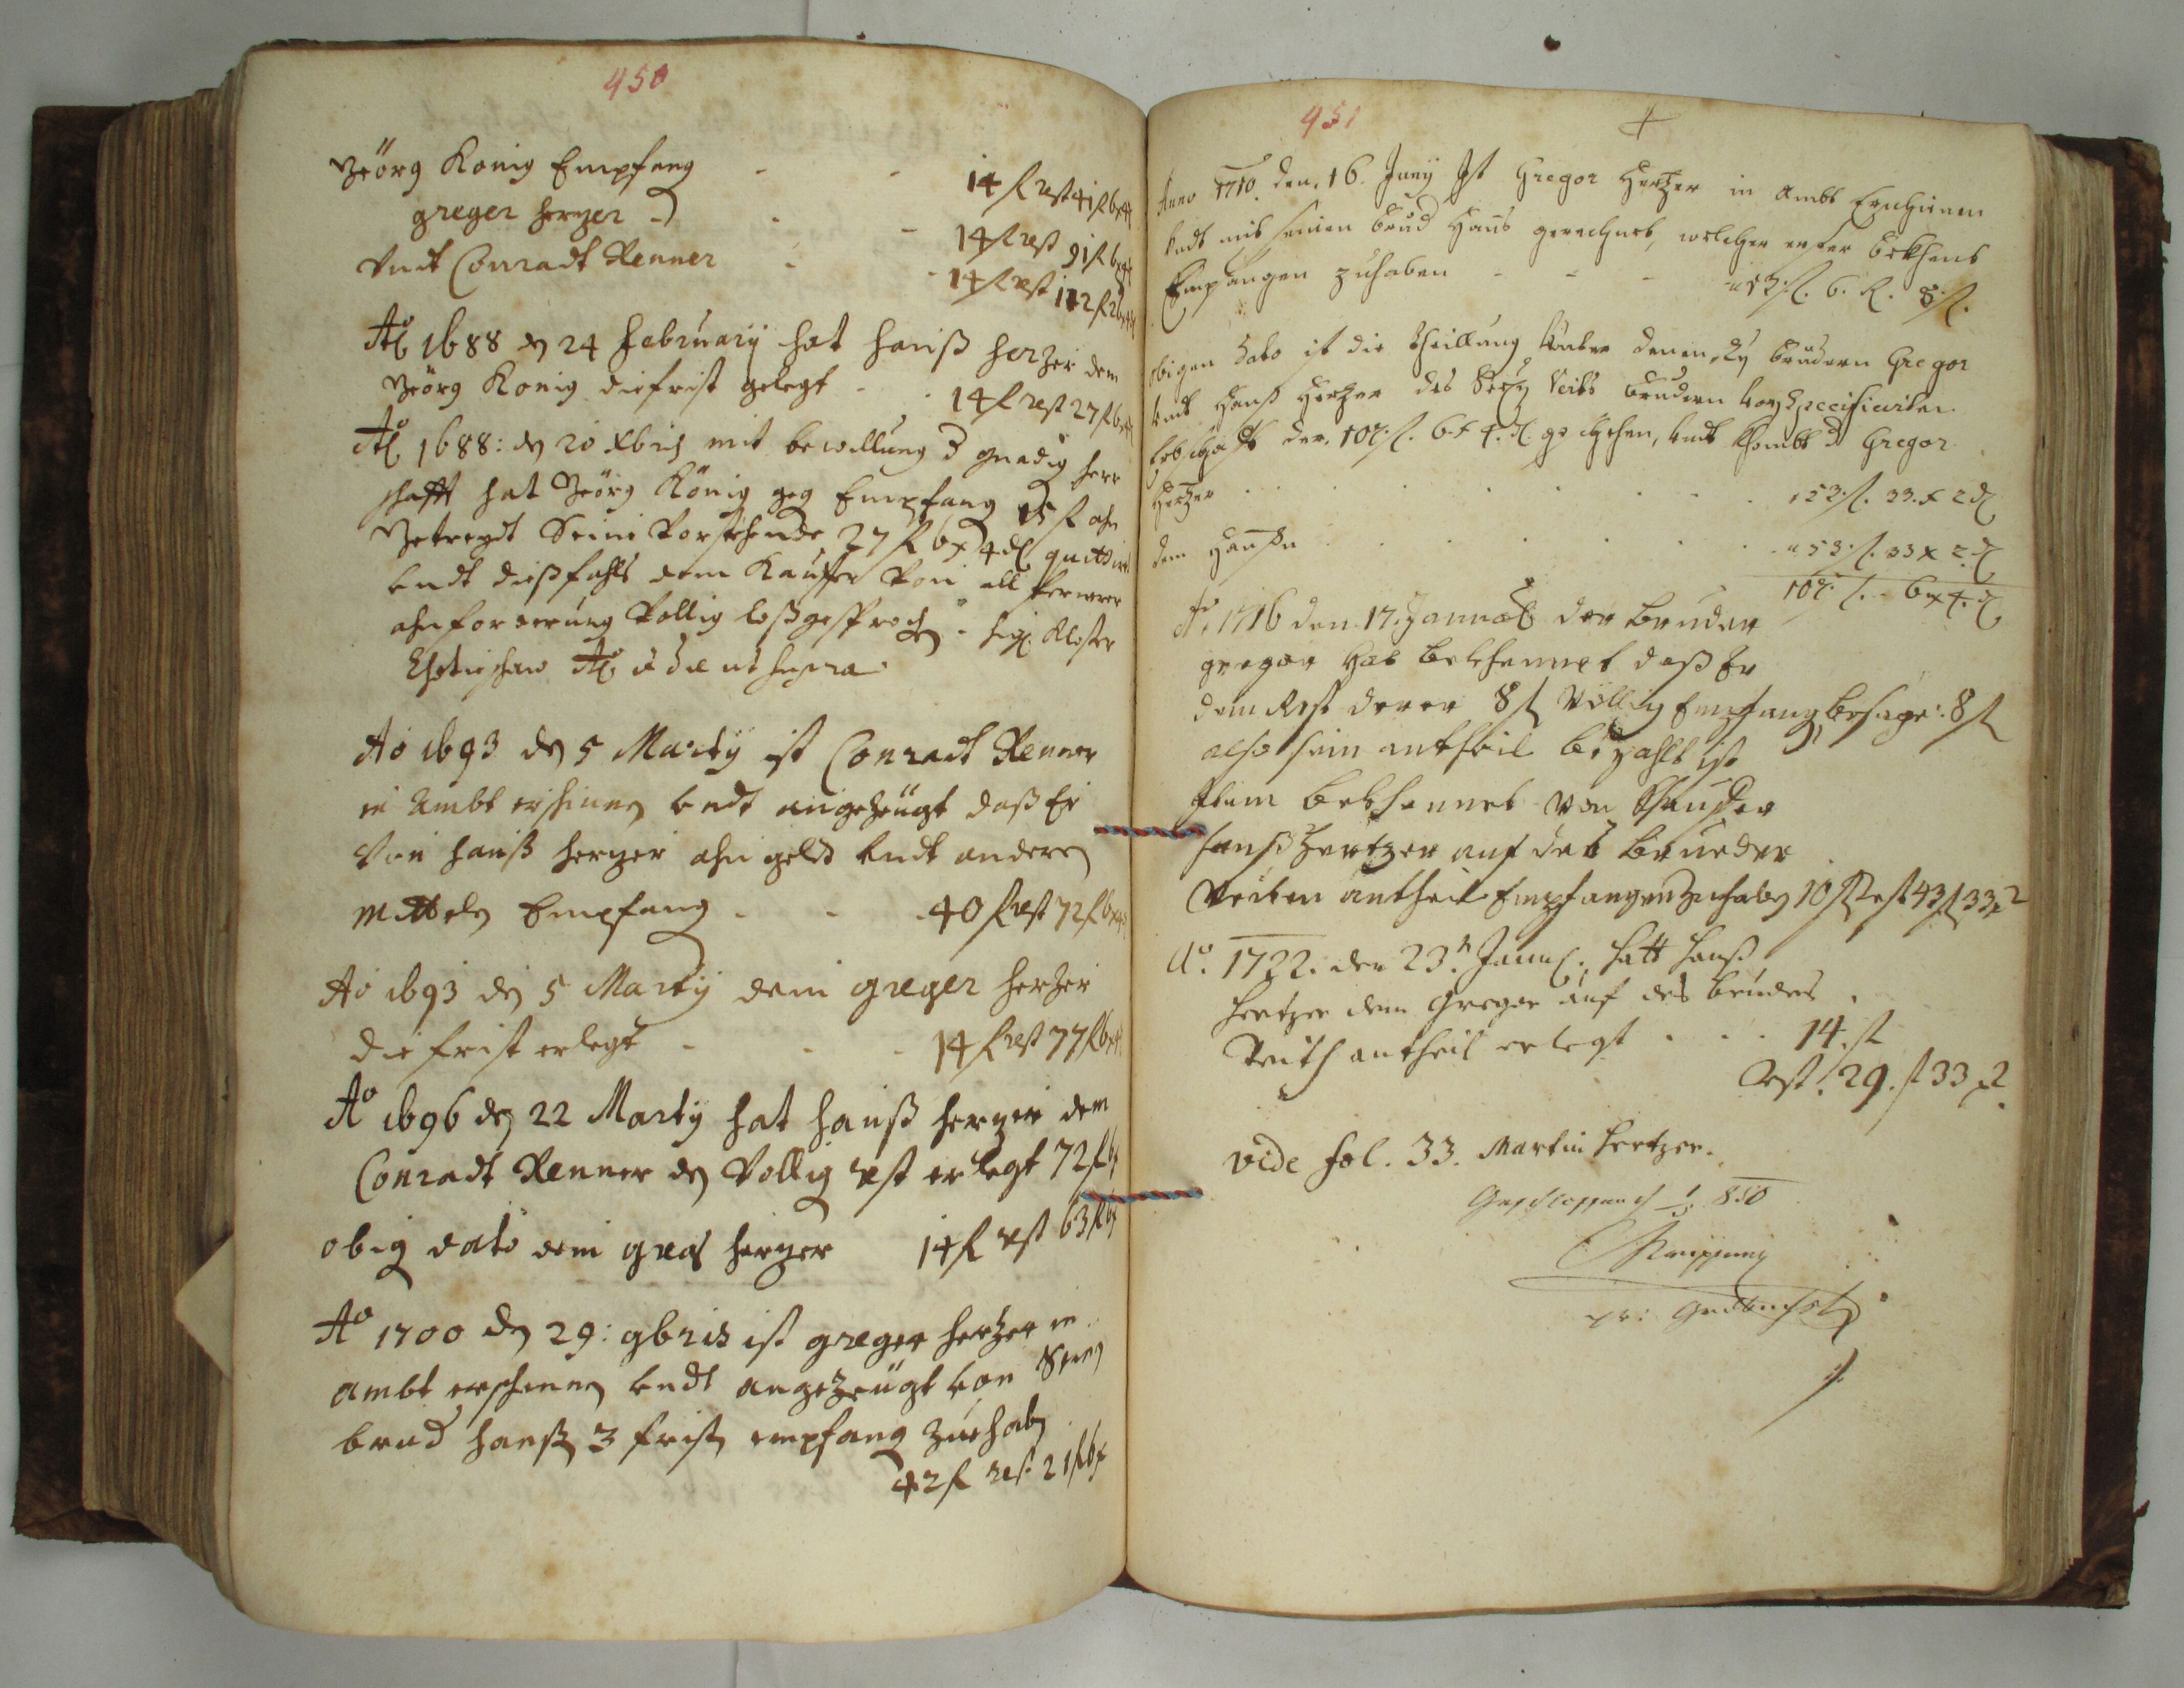 450
Jeörg Konig Empfang - - 14 fl rest 41 fl 6 x 4
greger herzer - - 14 fl rest 91 fl 6 x 4
Vndt Conradt Renner - - 14 fl rest 112 fl 6 x 4
Ao 1688 den 24 February hat hanß herzer dem
Jeörg Konig die frist gelegt - - 14 fl rest 27 fl 6 x 4
Ao 1688: den 20 Xbris mit bewillung d gnedig herr
schafft hat Jeörg König geg Empfang 15 fl ahn
Getreydt Seine Vorstehende 27 fl 6 x 4 d quittirt
vndt dießfahls dem Kauffer Von all fernerer
ahnforderung Vollig loßgesproch Sig. Kloster
Chotieschau Ao die ut supra
Ao 1693 den 5 Marty ist Conradt Renner
in Ambt erschinen vndt angezeügt daß Er
Von hanß herzer ahn geldt vndt anderen
Mitteln Empfang - - 40 fl rest 72 fl 6 x 4
Ao 1693 den 5 Marty dem greger herzer
die frist erlegt - - - 14 fl rest 77 fl 6 x 4
Ao 1696 den 22 Marty hat hanß herzer dem
Conradt Renner den Vollig rest erlegt 72 fl 6 x
obig dato dem greg herzer 14 fl rest 63 fl 6 x
Ao 1700 den 29: 9bris ist greger herzer in
ambt erschenen vndt angezeügt von Sein
brud hanßen 3 frist empfang zue haben
42 fl rest 21 fl 6 x
451
Anno 1710 den 16. Juny Ist Gregor Hertzer in Ambt Erschinen
Vndt mit seinen Brud Hanß gerechnet, welcher erster Bekhent
Empfangen zuhaben - - - 13 fl. 6. x. 8 fl.
obigen Dato ist die theillung Vnter denen Brüdern Gregor
Vndt Hanß Hertzer des Veits Brüdern Specificirten
Erbschafft der 107 fl. 6 x 4. d geschehen, Vndt khombt d Gregor
Hertzer . . . . . 53 fl. 33. x 2 d
dem Hanßen . . . . . 53 fl. 33 x 2 d
107 fl. 6 x 4. d
Ao 1716 den 17. Januar der bruder
gregor hat bekhennet daß Er
dem Rest derer 8 fl Völlig Empfang, besage: 8 fl
also sein antheil bezahlt ist
Item bekhennet von Kauffer
hanß hertzer auf des brueder
Veiten antheil Empfangen zuhaben 10 fl Rest 43 fl 33 x 2
Ao. 1722. den 23.n Janu. hatt hanß
hertzer dem Gregor auf des bruders
Veith antheil erlegt . . . 14. fl
Rest. 29. fl 33 x 2
vide fol. 33. Martin hertzer.